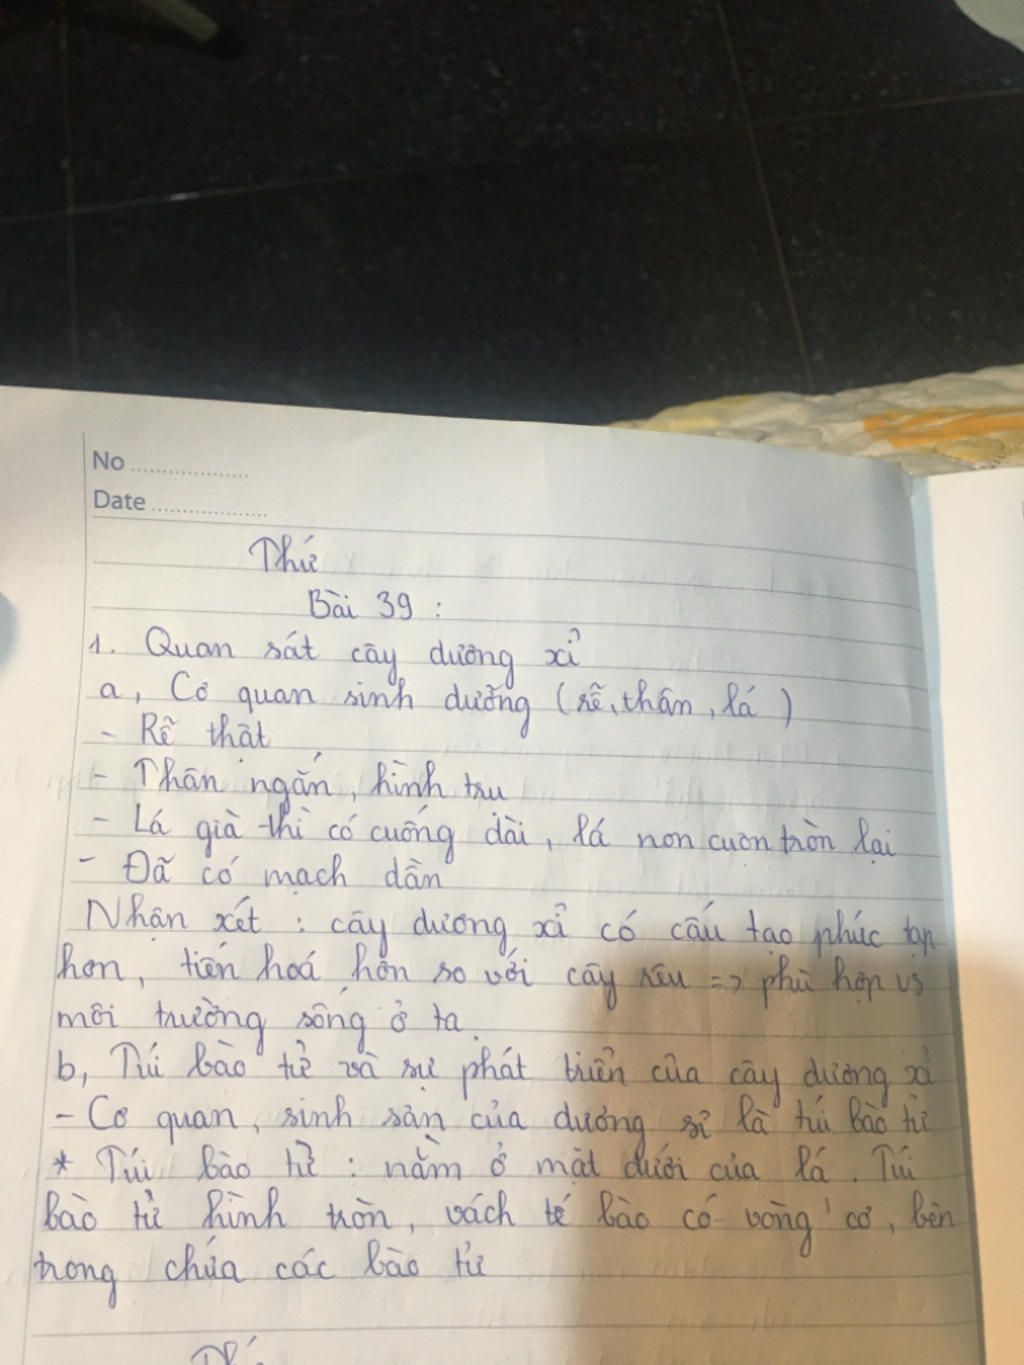 No
Date
Thứ
Bài 39 :
1. Quan sát cây dương xỉ
a, Cơ quan sinh dưỡng (rễ, thân, lá)
- Rễ thật
- Thân ngắn, hình trụ
- Lá già thì có cuống dài, lá non cuộn tròn lại
- Đã có mạch dẫn
Nhận xét : cây dương xỉ có cấu tạo phức tạp
hơn, tiến hoá hơn so với cây rêu => phù hợp vs
môi trường sống ở
b, Túi bào tử và sự phát triển của cây dương xỉ
- Cơ quan sinh sản của dương sỉ là túi bào tử
* Túi bào tử : nằm ở mặt dưới của lá. Túi
bào tử hình tròn, vách tế bào có vòng cơ, bên
trong chứa các bào tử